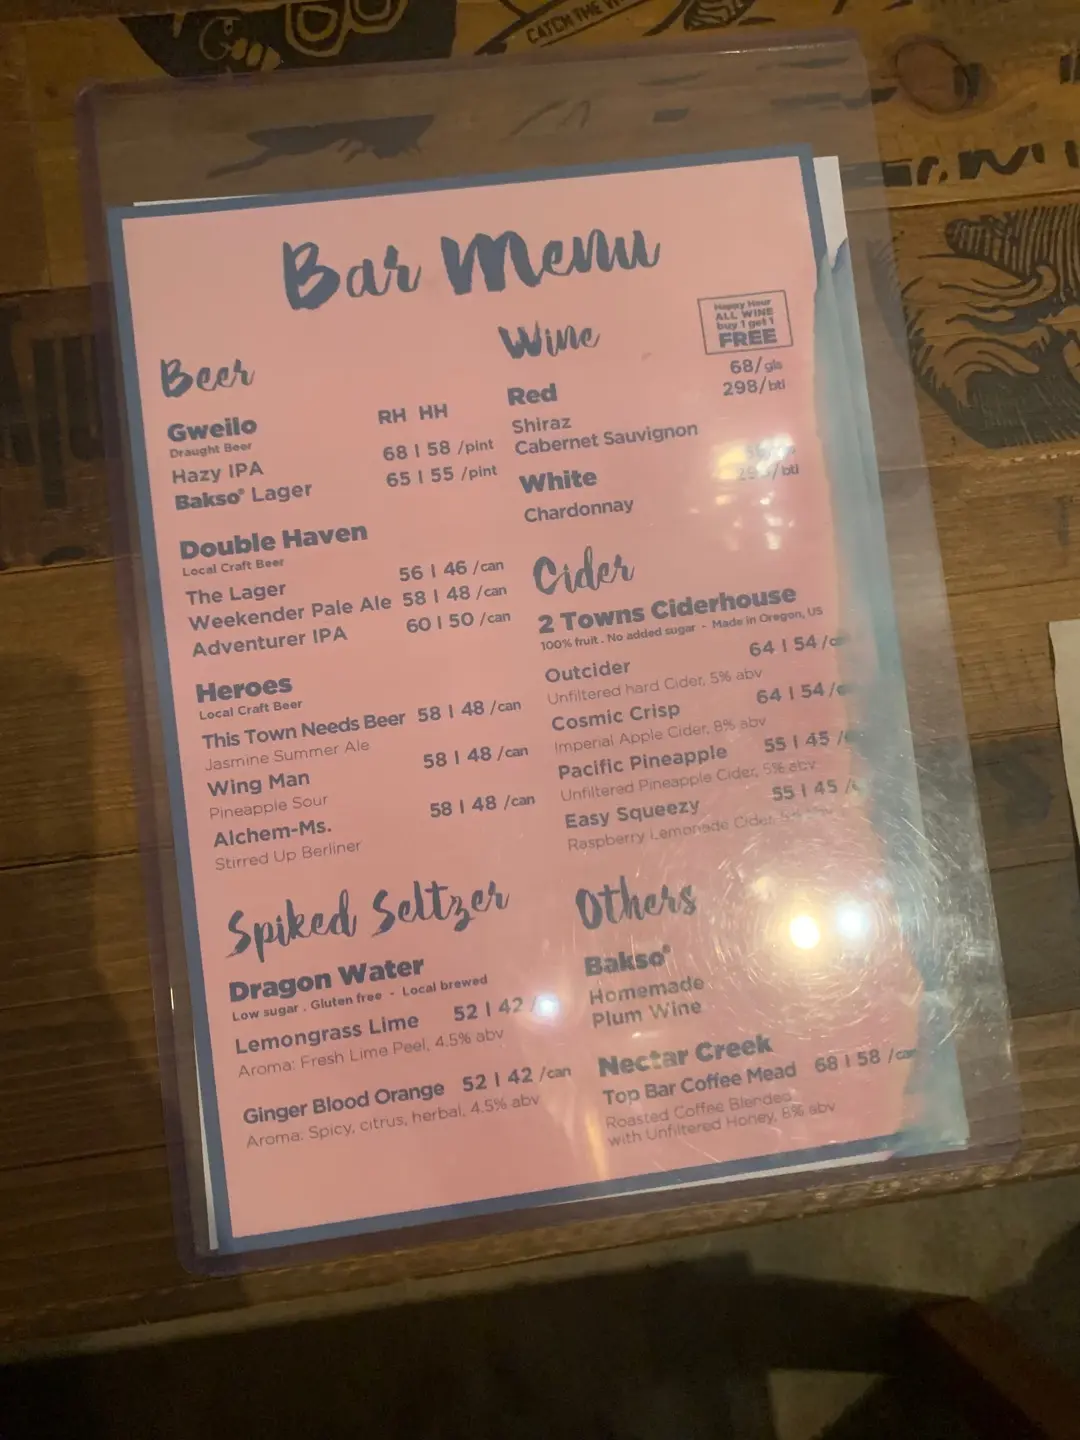 CATCH THE
Bar Menu
Beer
RH HH
Gweilo
Draught Beer
Hazy IPA 68 | 58 /pint
Bakso® Lager 65 | 55 /pint
Double Haven
Local Craft Beer
The Lager 56 | 46 /can
Weekender Pale Ale 58 | 48 /can
Adventurer IPA 60 | 50 /can
Heroes
Local Craft Beer
This Town Needs Beer 58 | 48 /can
Jasmine Summer Ale
Wing Man 58 | 48 /can
Pineapple Sour
Alchem-Ms. 58 | 48 /can
Stirred Up Berliner
Spiked Seltzer
Dragon Water
Low sugar . Gluten free - Local brewed
Lemongrass Lime 52 | 42
Aroma: Fresh Lime Peel, 4.5% abv
Ginger Blood Orange 52 | 42 /can
Aroma: Spicy, citrus, herbal, 4.5% abv
Wine
Happy Hour
ALL WINE
buy 1 get 1
FREE
68/gls
Red 298/btl
Shiraz
Cabernet Sauvignon
White
Chardonnay
Cider
2 Towns Ciderhouse
100% fruit . No added sugar - Made in Oregon, US
Outcider 64 | 54
Unfiltered hard Cider, 5% abv
Cosmic Crisp 64 | 54
Imperial Apple Cider, 8% abv
Pacific Pineapple 55 | 45
Unfiltered Pineapple Cider, 5% abv
Easy Squeezy 55 | 45
Raspberry Lemonade Cider,
Others
Bakso®
Homemade
Plum Wine
Nectar Creek
Top Bar Coffee Mead 68 | 58 /can
Roasted Coffee Blended
with Unfiltered Honey, 6% abv